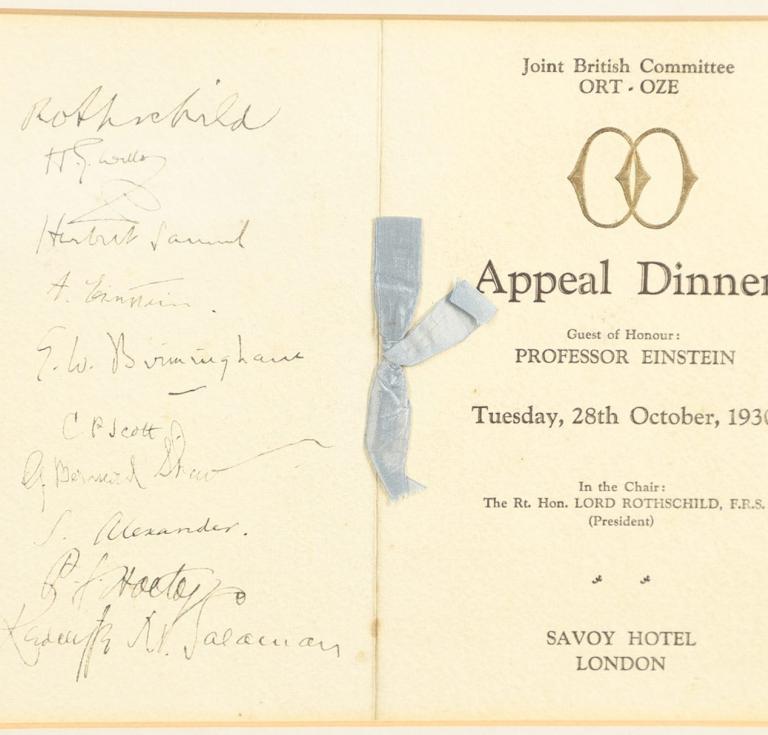 Rothschild
H.G. Wells
Herbert Samuel
A. Einstein.
E. W. Birmingham
C P Scott
G. Bernard Shaw
S. Alexander.
P. J. Hartog
Redcliffe N. Salaman
Joint British Committee
ORT - OZE
Appeal Dinner
Guest of Honour:
PROFESSOR EINSTEIN
Tuesday, 28th October, 1930
In the Chair:
The Rt. Hon. LORD ROTHSCHILD, F.R.S.
(President)
SAVOY HOTEL
LONDON